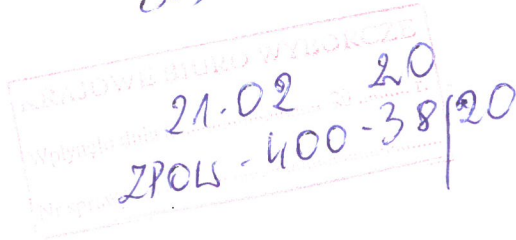 KRAJOWE BIURO WYBORCZE
Wpłynęło dnia 21.02 20
ZPOW-400-38/20